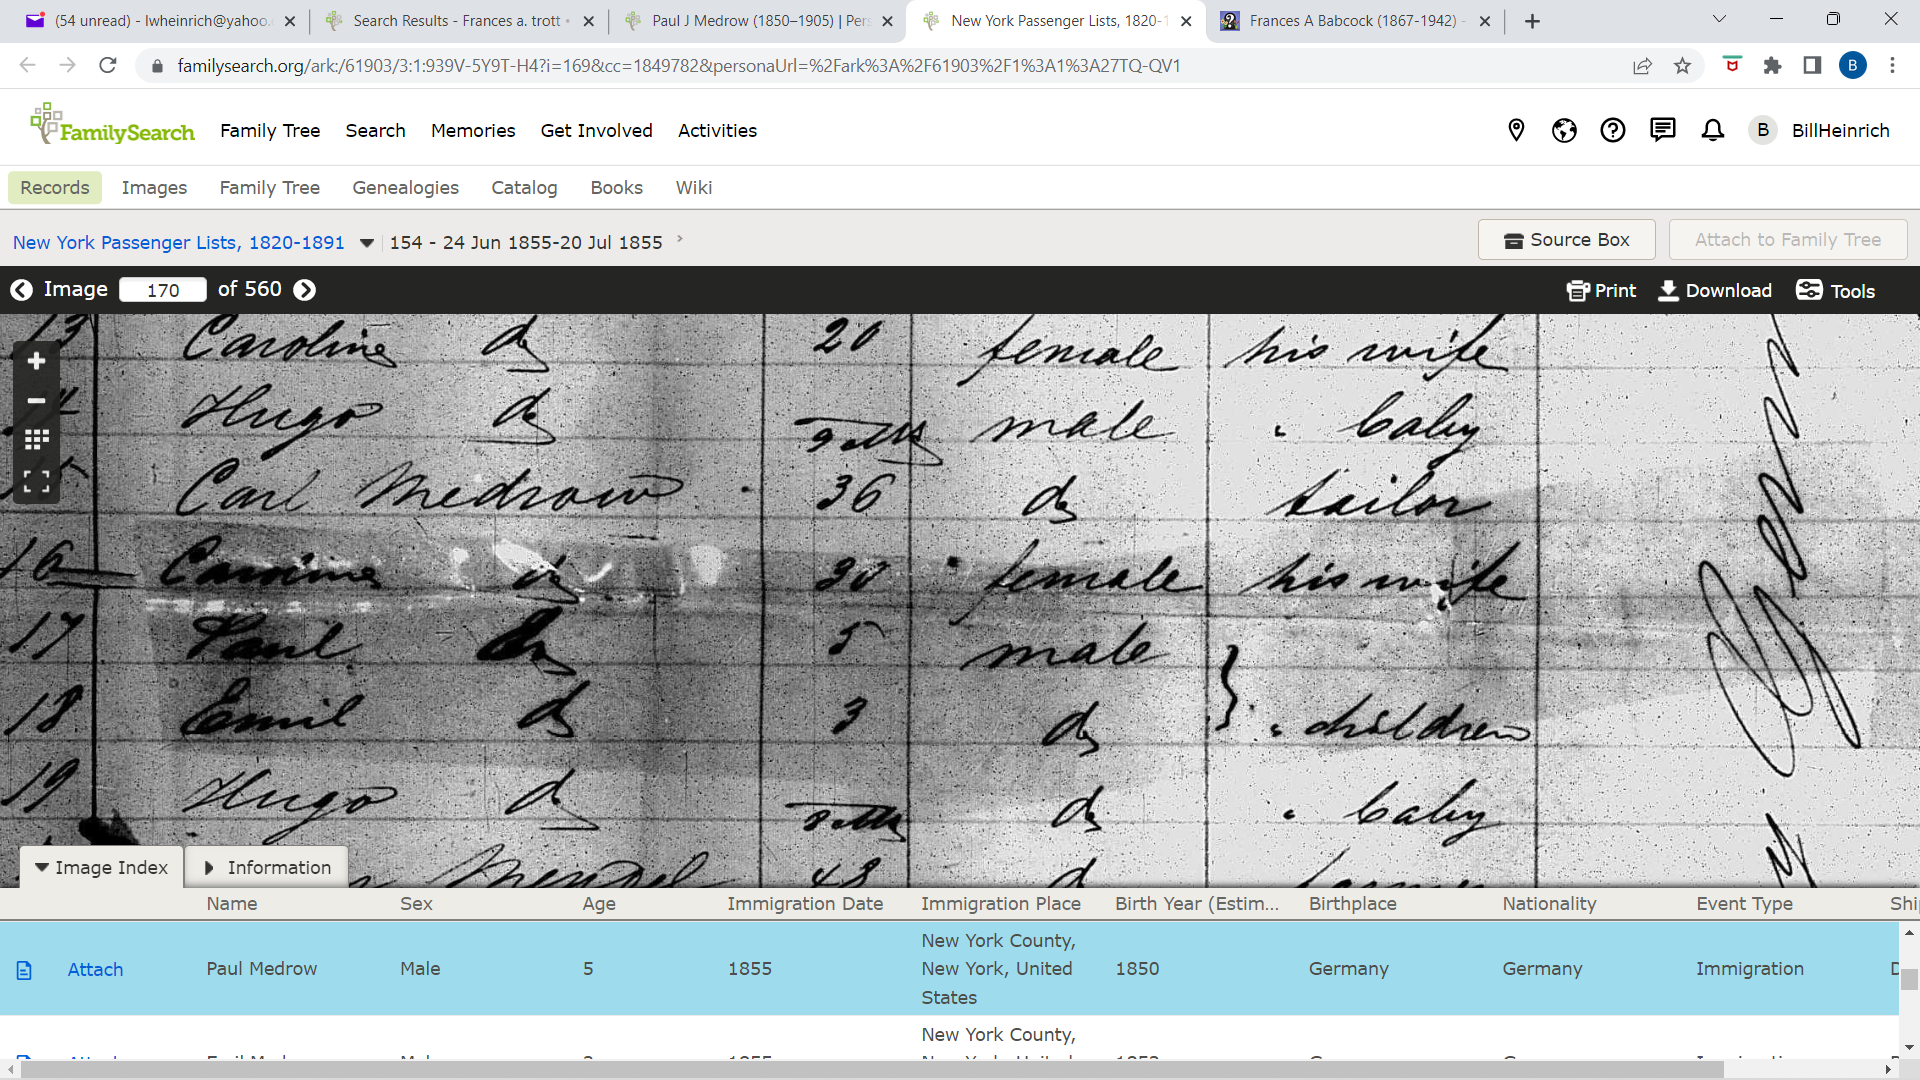 (54 unread) - lwheinrich@yahoo.
Search Results - Frances a. trott
Paul J Medrow (1850–1905) | Pers
New York Passenger Lists, 1820-1
Frances A Babcock (1867-1942) -
familysearch.org/ark:/61903/3:1:939V-5Y9T-H4?i=169&cc=1849782&personaUrl=%2Fark%3A%2F61903%2F1%3A1%3A27TQ-QV1
B
FamilySearch Family Tree Search Memories Get Involved Activities B BillHeinrich
Records Images Family Tree Genealogies Catalog Books Wiki
New York Passenger Lists, 1820-1891 154 - 24 Jun 1855-20 Jul 1855 Source Box Attach to Family Tree
Image 170 of 560 Print Download Tools
13 Caroline do 20 female his wife
14 Hugo do male " baby
15 Carl Medrow 36 do tailor
16 Caroline do 30 female his wife
17 Paul do 5 male
18 Emil do 3 do " children
19 Hugo do do " baby
Mendel 48 do
Image Index Information
Name Sex Age Immigration Date Immigration Place Birth Year (Estim... Birthplace Nationality Event Type Shi
Attach Paul Medrow Male 5 1855 New York County, New York, United States 1850 Germany Germany Immigration
New York County,